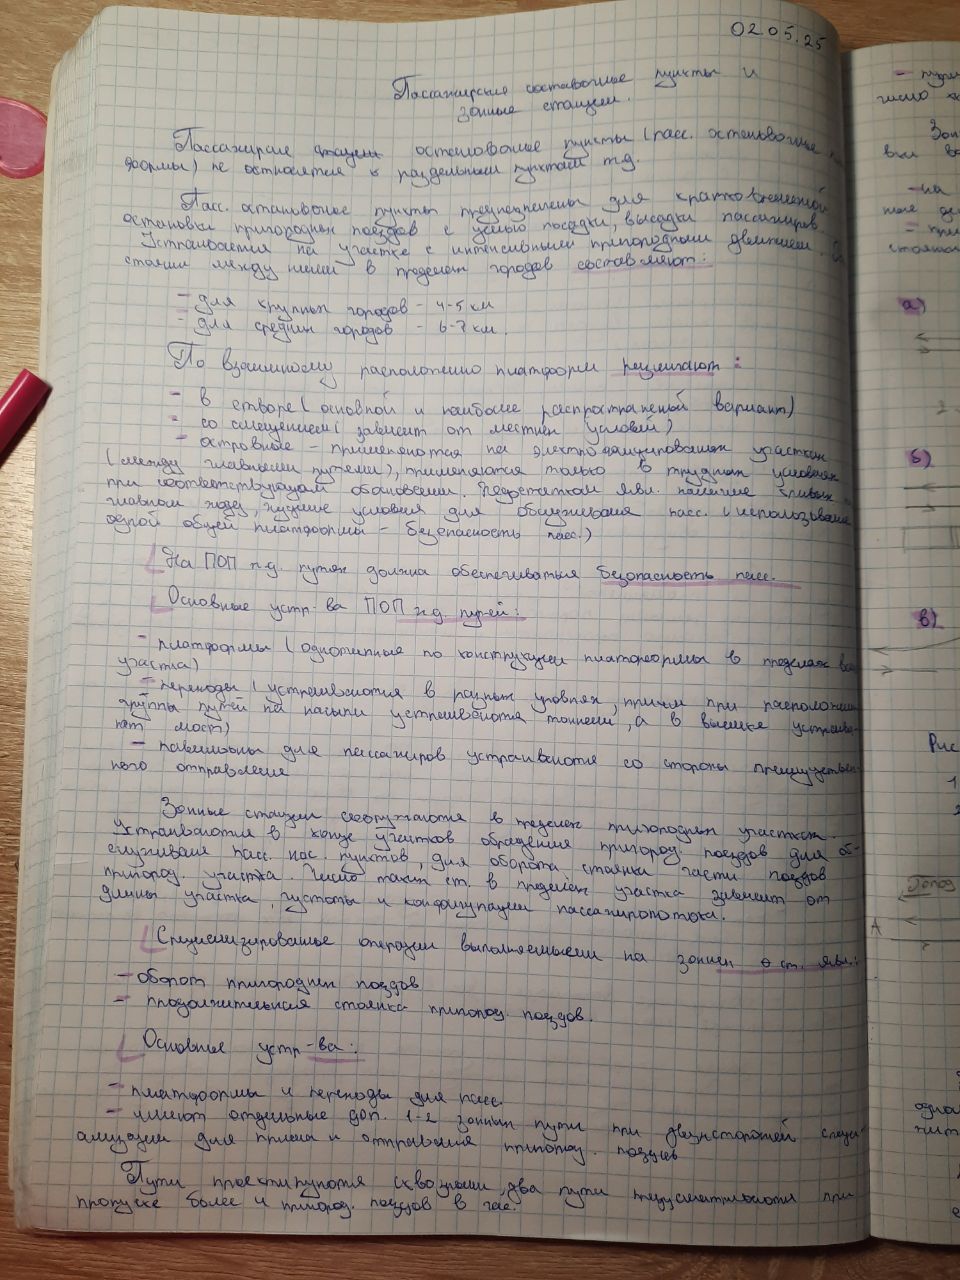 02.05.25
Пассажирские составочные пункты и
зонные станции.
Пассажирские остановочные пункты (пасс. остановочные
формы) не относятся к раздельным пунктам жд.
Пасс. остановочные пункты предназначены для кратковременной
остановки пригородных поездов с целью посадки, высадки пассажиров.
Устраиваются на участке с интенсивными пригородными движением.
стояния между ними в пределах городов составляют:
- для крупных городов - 4-5 км
- для средних городов - 6-7 км.
По взаимному расположению платформ различают:
- в створе (основной и наиболее распространеный вариант)
- со смещением (зависит от местных условий)
- островные - применяются на электрифицированных участках
(между главными путями), применяются только в трудных условиях
при соответствующем обосновании. Недостатком явл. наличие кривых
главном ходу, худшие условия для обслуживания пасс. (использование
одной общей платформы - безопасность пасс.)
На ПОП ж.д. путях должна обеспечиваться безопасность пасс.
Основные устр-ва ПОП ж.д. пут-ей:
- платформы (однотипные по конструкции платформы в пределах
участка)
- переходы (устраиваются в разных уровнях, причем при расположении
группы путей на насыпи устраиваются тоннели, а в выемке устраива-
ют мост)
- павильоны для пассажиров устраиваются со стороны преимуществен-
ного отправления
Зонные станции сооружаются в пределах пригородных участках.
Устраиваются в конце участков обращения пригород. поездов для об-
служивания пасс. нас. пунктов, для оборота стоянка части поездов
пригород. участка. Число таких ст. в пределах участка зависит от
длины участка, густоты и конфигурации пассажиропотока.
Специализированые операции выполняемыми на зонных ст. явл.:
- оборот пригородных поездов
- продолжительная стоянка пригород. поездов.
Основные устр-ва:
- платформы и переходы для пасс.
- имеют отдельные доп. 1-2 зонных пути при двухсторонней специ-
ализации для приема и отправления пригород. поездов
Пути проектируются сквозными, два пути предусматриваются при
пропуске более и пригород. поездов в час.
число
а)
б)
в)
Рис
1
А